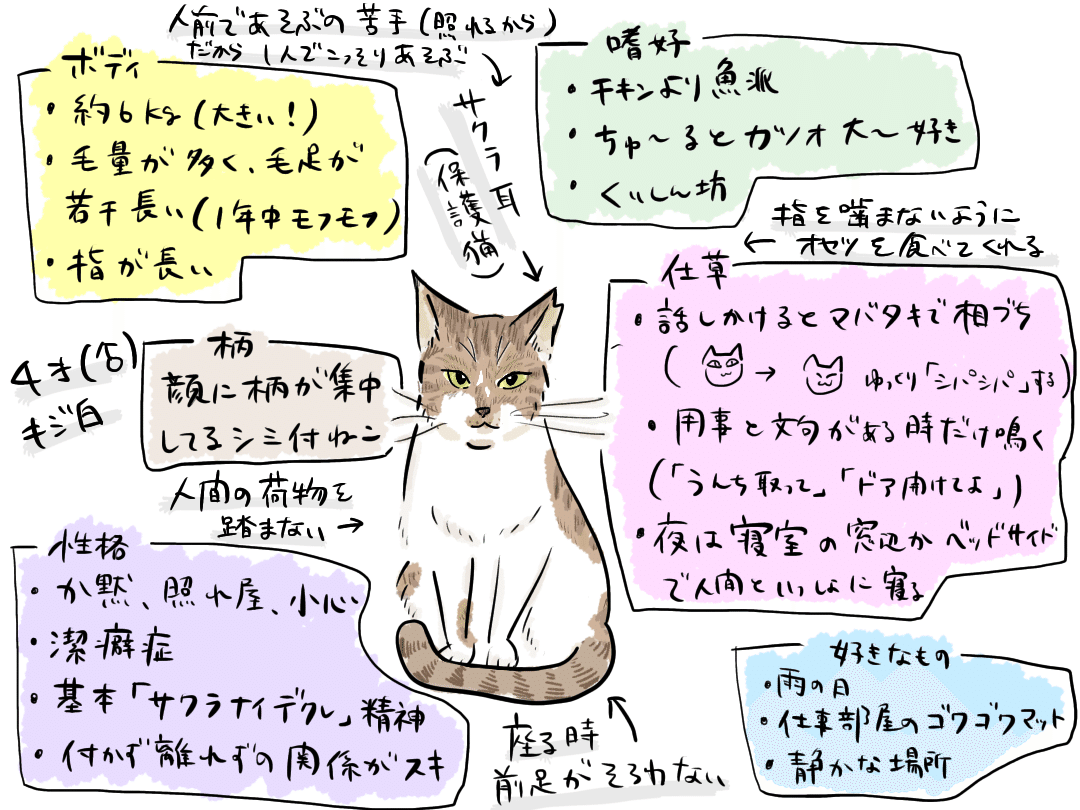 人前であそぶの苦手(照れるから)
だから1人でこっそりあそぶ
ボディ
・約6kg(大きい!)
・毛量が多く、毛足が
若干長い(1年中モフモフ)
・指が長い
サクラ耳
(保護猫)
嗜好
・チキンより魚派
・ちゅ〜るとカツオ大〜好き
・くいしん坊
指を噛まないように
← オヤツを食べてくれる
4才(♂)
キジ白
柄
顔に柄が集中
してるシミ付ねこ
仕草
・話しかけるとマバタキで相づち
( → ゆっくり「シパシパ」する)
・用事と文句がある時だけ鳴く
(「うんち取って」「ドア開けてよ」)
・夜は寝室の窓辺かベッドサイド
で人間といっしょに寝る
人間の荷物を
踏まない →
性格
・か黙、照れ屋、小心
・潔癖症
・基本「サワラナイデクレ」精神
・付かず離れずの関係がスキ
座る時
前足がそろわない
好きなもの
・雨の日
・仕事部屋のゴワゴワマット
・静かな場所